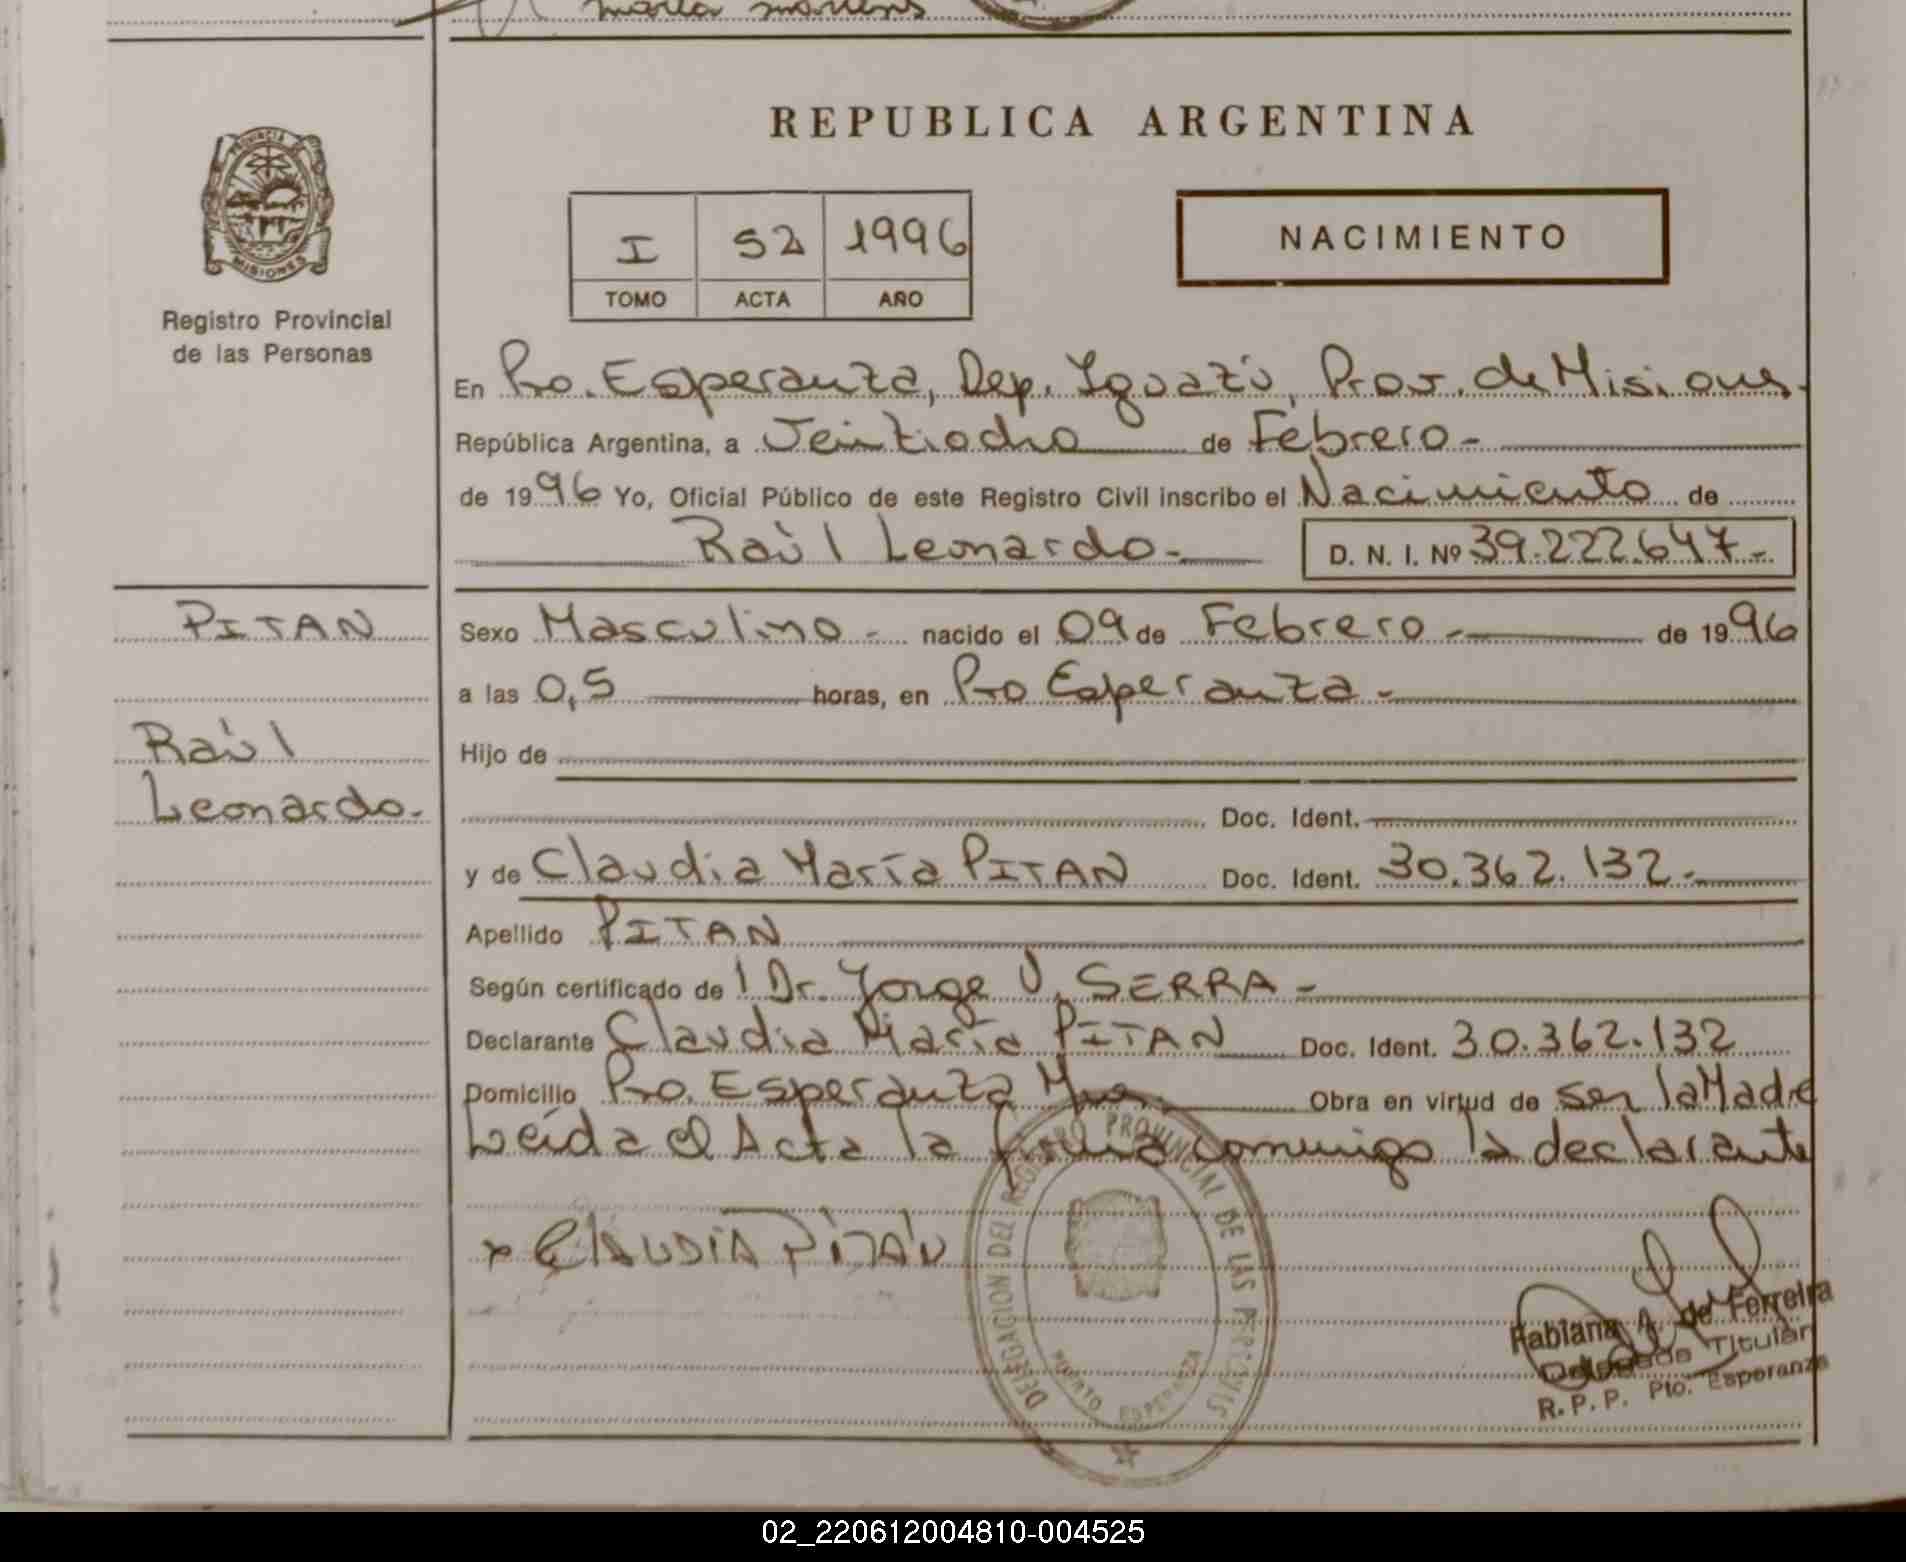 REPUBLICA ARGENTINA
PROVINCIA DE
MISIONES
Registro Provincial
de las Personas
I 52 1996
TOMO ACTA AÑO
NACIMIENTO
En Pto. Esperanza, Dep. Iguazú, Prov. de Misiones.
República Argentina, a Veintiocho de Febrero -
de 1996 Yo, Oficial Público de este Registro Civil inscribo el Nacimiento de
Raúl Leonardo - D. N. I. Nº 39.222.647 -
PITAN
Raúl
Leonardo.
Sexo Masculino - nacido el 09 de Febrero - de 1996
a las 0,5 horas, en Pto Esperanza -
Hijo de
Doc. Ident.
y de Claudia María PITAN Doc. Ident. 30.362.132 -
Apellido PITAN
Según certificado del Dr. Jorge V. SERRA -
Declarante Claudia María PITAN Doc. Ident. 30.362.132
Domicilio Pto. Esperanza Mnes. Obra en virtud de ser la Madre
Leída el Acta la firma conmigo la declarante
x CLAUDIA PITAN
DELEGACION DEL REGISTRO PROVINCIAL DE LAS PERSONAS
PUERTO ESPERANZA
Fabiana A. de Ferreira
Delegada Titular
R. P. P. Pto. Esperanza
02_220612004810-004525